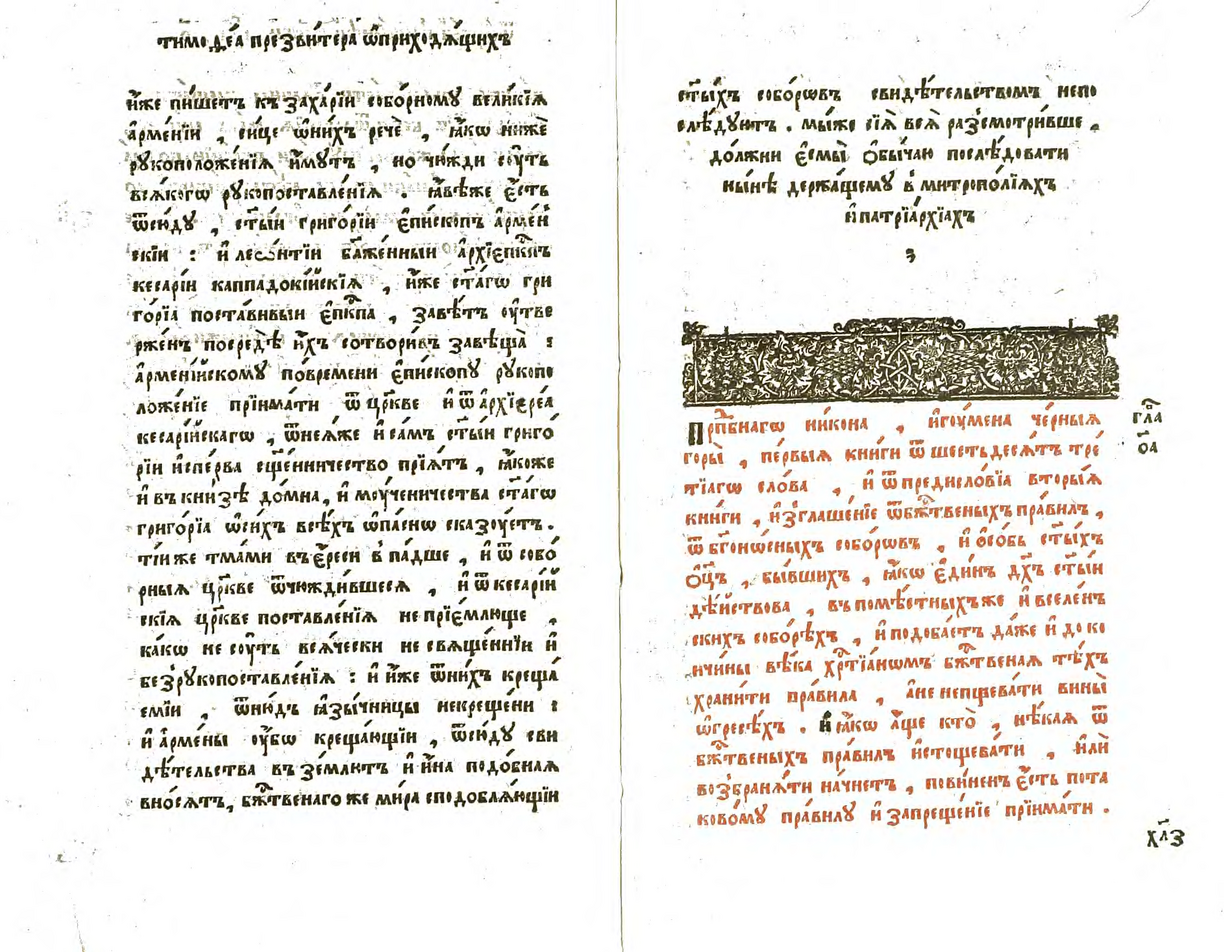 тимоѳе́а презви́тера ѡ҆приходѧ́щихъ
и҆́же пи́шетъ къ заха́рїи собо́рному вели́кїѧ
а҆рме́нїи , си́це ѿни́хъ речѐ , ꙗ҆́кѡ нижѐ
рꙋкоположе́нїѧ и҆́мꙋтъ , но чю́жди сꙋ́ть
всѧ́когѡ рꙋкопоставле́нїѧ . ꙗ҆́вѣже є҆́сть
ѿсю́дꙋ , ст҃ы́и григо́рїи є҆пи́скопъ а҆рме́н
скїи : и҆ лео́нтїи бл҃же́нныи а҆рхїепⷭ҇кпъ
кесарі́и каппадокі́йскїѧ , и҆́же ст҃а́гѡ гри
го́рїа поста́вивыи є҆пⷭ҇кпа , завѣ́тъ ᲂу҆тве
рже́нъ посредѣ̀ и҆́хъ сотвори́въ завѣща̀ :
а҆рмені́йскомꙋ повре́мени є҆пи́скопꙋ рꙋкопо
ложе́нїе прїима́ти ѿ цр҃кве и҆ ѿ а҆рхїере́а
кесарі́йскагѡ , ѿнеѧ́же и҆ са́мъ ст҃ы́и григо́
рїи и҆спе́рва сщ҃е́нничество прїѧ́тъ , ꙗ҆́коже
и҆ въ кни́зѣ до́мна , и҆ мꙋ́ченичества ст҃а́гѡ
григо́рїа ѡ҆си́хъ всѣ́хъ ѡ҆па́снѡ сказꙋ́етъ .
ті́и же тма́ми въ є҆́реси в̾па́дше , и҆ ѿ собо́
рныѧ цр҃кве ѿчюжди́вшесѧ , и҆ ѿ кесарі́й
скїѧ цр҃кве поставле́нїѧ не прїе́млюще ,
ка́кѡ не сꙋ́ть всѧ́чески не свѧще́ннїи и҆
без̾рꙋкопоставле́нїѧ : и҆ и҆́же ѿни́хъ креща́
емїи , ѿню́дъ ꙗ҆зы́чницы некреще́ни :
и҆ а҆рме́ны ᲂу҆́бѡ креща́ющїи , ѿсю́дꙋ сви
дѣ́тельства въ зе́млютъ и҆ и҆́на подо́бнаѧ
вно́сѧтъ , бж҃твенаго же мѵ́ра сподоблѧ́ющїи
ст҃ы́хъ собо́рѡвъ свидѣ́тельствомъ непо
слѣ́дꙋютъ . мы́же сїѧ̀ всѧ̀ раз̾смотри́вше ,
до́лжни є҆смы̀ ѻ҆бы́чаю послѣ́довати
ны́нѣ держа́щемꙋ в̾ митропо́лїѧхъ
и҆ патрїа́рхїахъ
з
Прпⷣбнагѡ ни́кона , и҆гꙋ́мена че́рныѧ
горы̀ , пе́рвыѧ кни́ги ѿ шестьдесѧ́тъ тре́
тїагѡ сло́ва , и҆ ѿпредисло́вїа вторы́ѧ
кни́ги , и҆з̾глаше́нїе ѡ҆бж҃твеныхъ пра́вилъ ,
ѿ бг҃оно́сныхъ собо́рѡвъ , и҆ ѻ҆со́бь ст҃ы́хъ
ѻ҆ц҃ъ , бы́вшихъ , ꙗ҆́кѡ є҆ди́нъ дх҃ъ ст҃ы́и
дѣ́йствова , въ помѣ́стныхъже и҆ вселе́н
скихъ собо́рѣхъ , и҆ подоба́етъ да́же и҆ до ко
нчи́ны вѣ́ка хрⷭ҇тїа́нѡмъ бж҃твенаѧ тѣ́хъ
храни́ти пра́вила , а҆не непщева́ти вины̀
ѡ҆гресѣ́хъ . И҆ ꙗ҆́кѡ а҆́ще кто̀ , нѣ́каѧ ѿ
бж҃твеныхъ пра́вилъ и҆стощева́ти , и҆лѝ
воз̾бранѧ́ти на́чнетъ , пови́ненъ є҆́сть пота
ково́мꙋ пра́вилꙋ и҆ запреще́нїе прїима́ти .
гла̀
о҃а
хл҃з